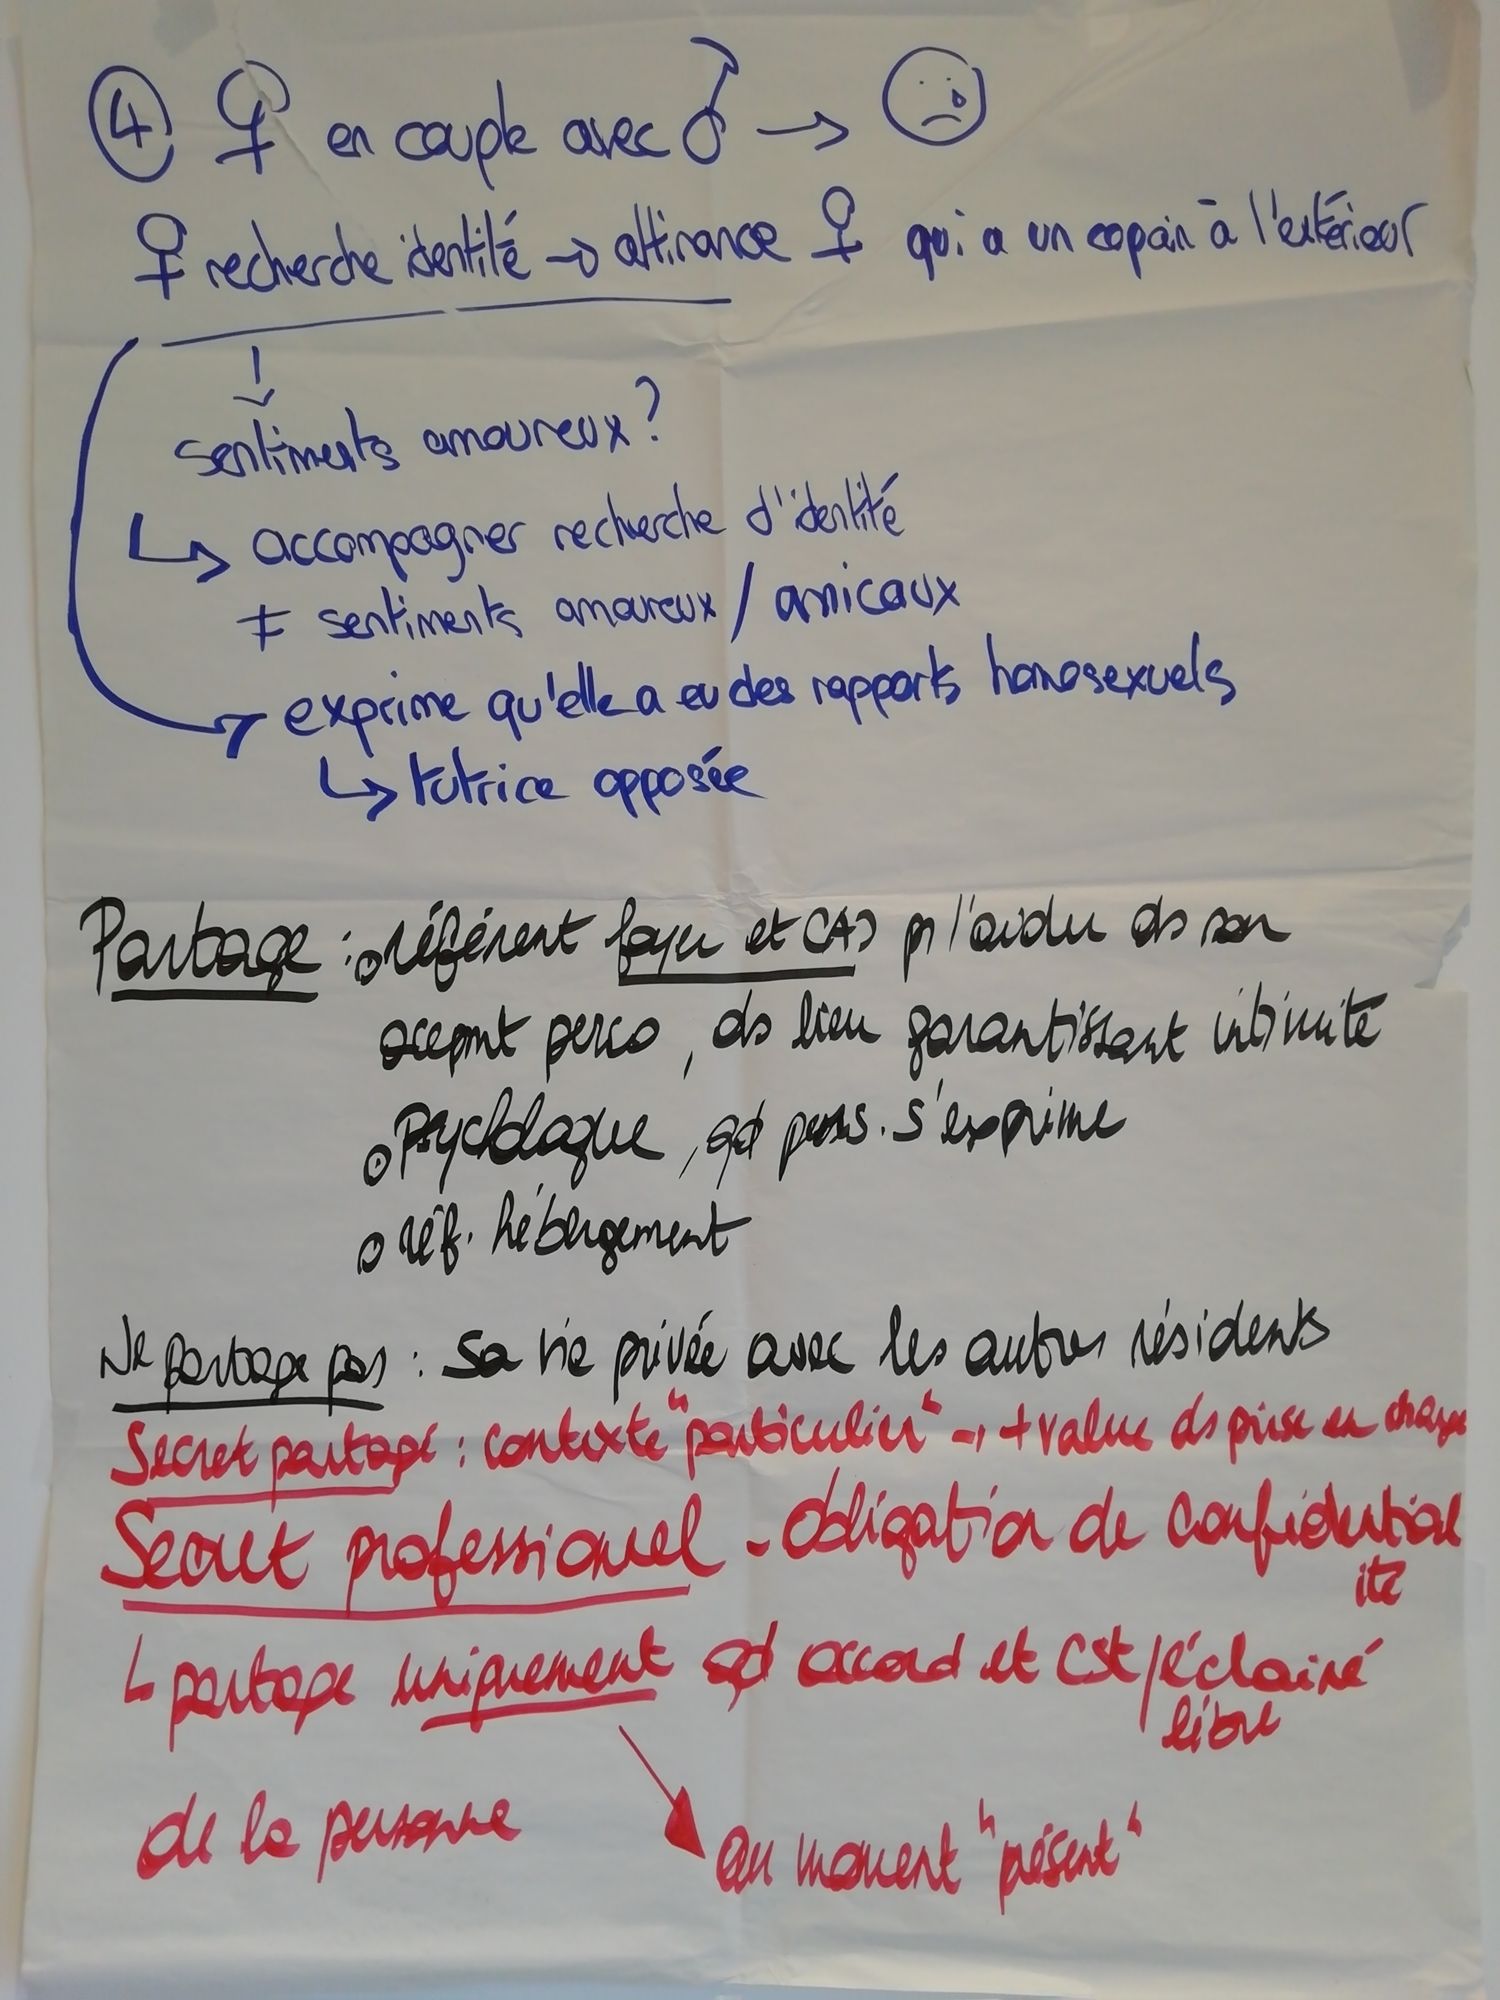 ④ ♀ en couple avec ♂ →
♀ recherche identité → attirance ♀ qui a un copain à l'extérieur
sentiments amoureux ?
↳ accompagner recherche d'identité
≠ sentiments amoureux / amicaux
exprime qu'elle a eu des rapports homosexuels
↳ tutrice opposée
Partage : o référent foyer et CAJ pr l'aider ds son
acepmt perso, ds lieu garantissant intimité
o Psychologue, qd pers. s'exprime
o réf. hébergement
Ne partage pas : sa vie privée avec les autres résidents
Secret partagé : contexte "particulier" → + value ds prise en charge
Secret professionnel - Obligation de confidential
ité
↳ partage uniquement qd accord et cst / éclairé
libre
de la personne
au moment "présent"